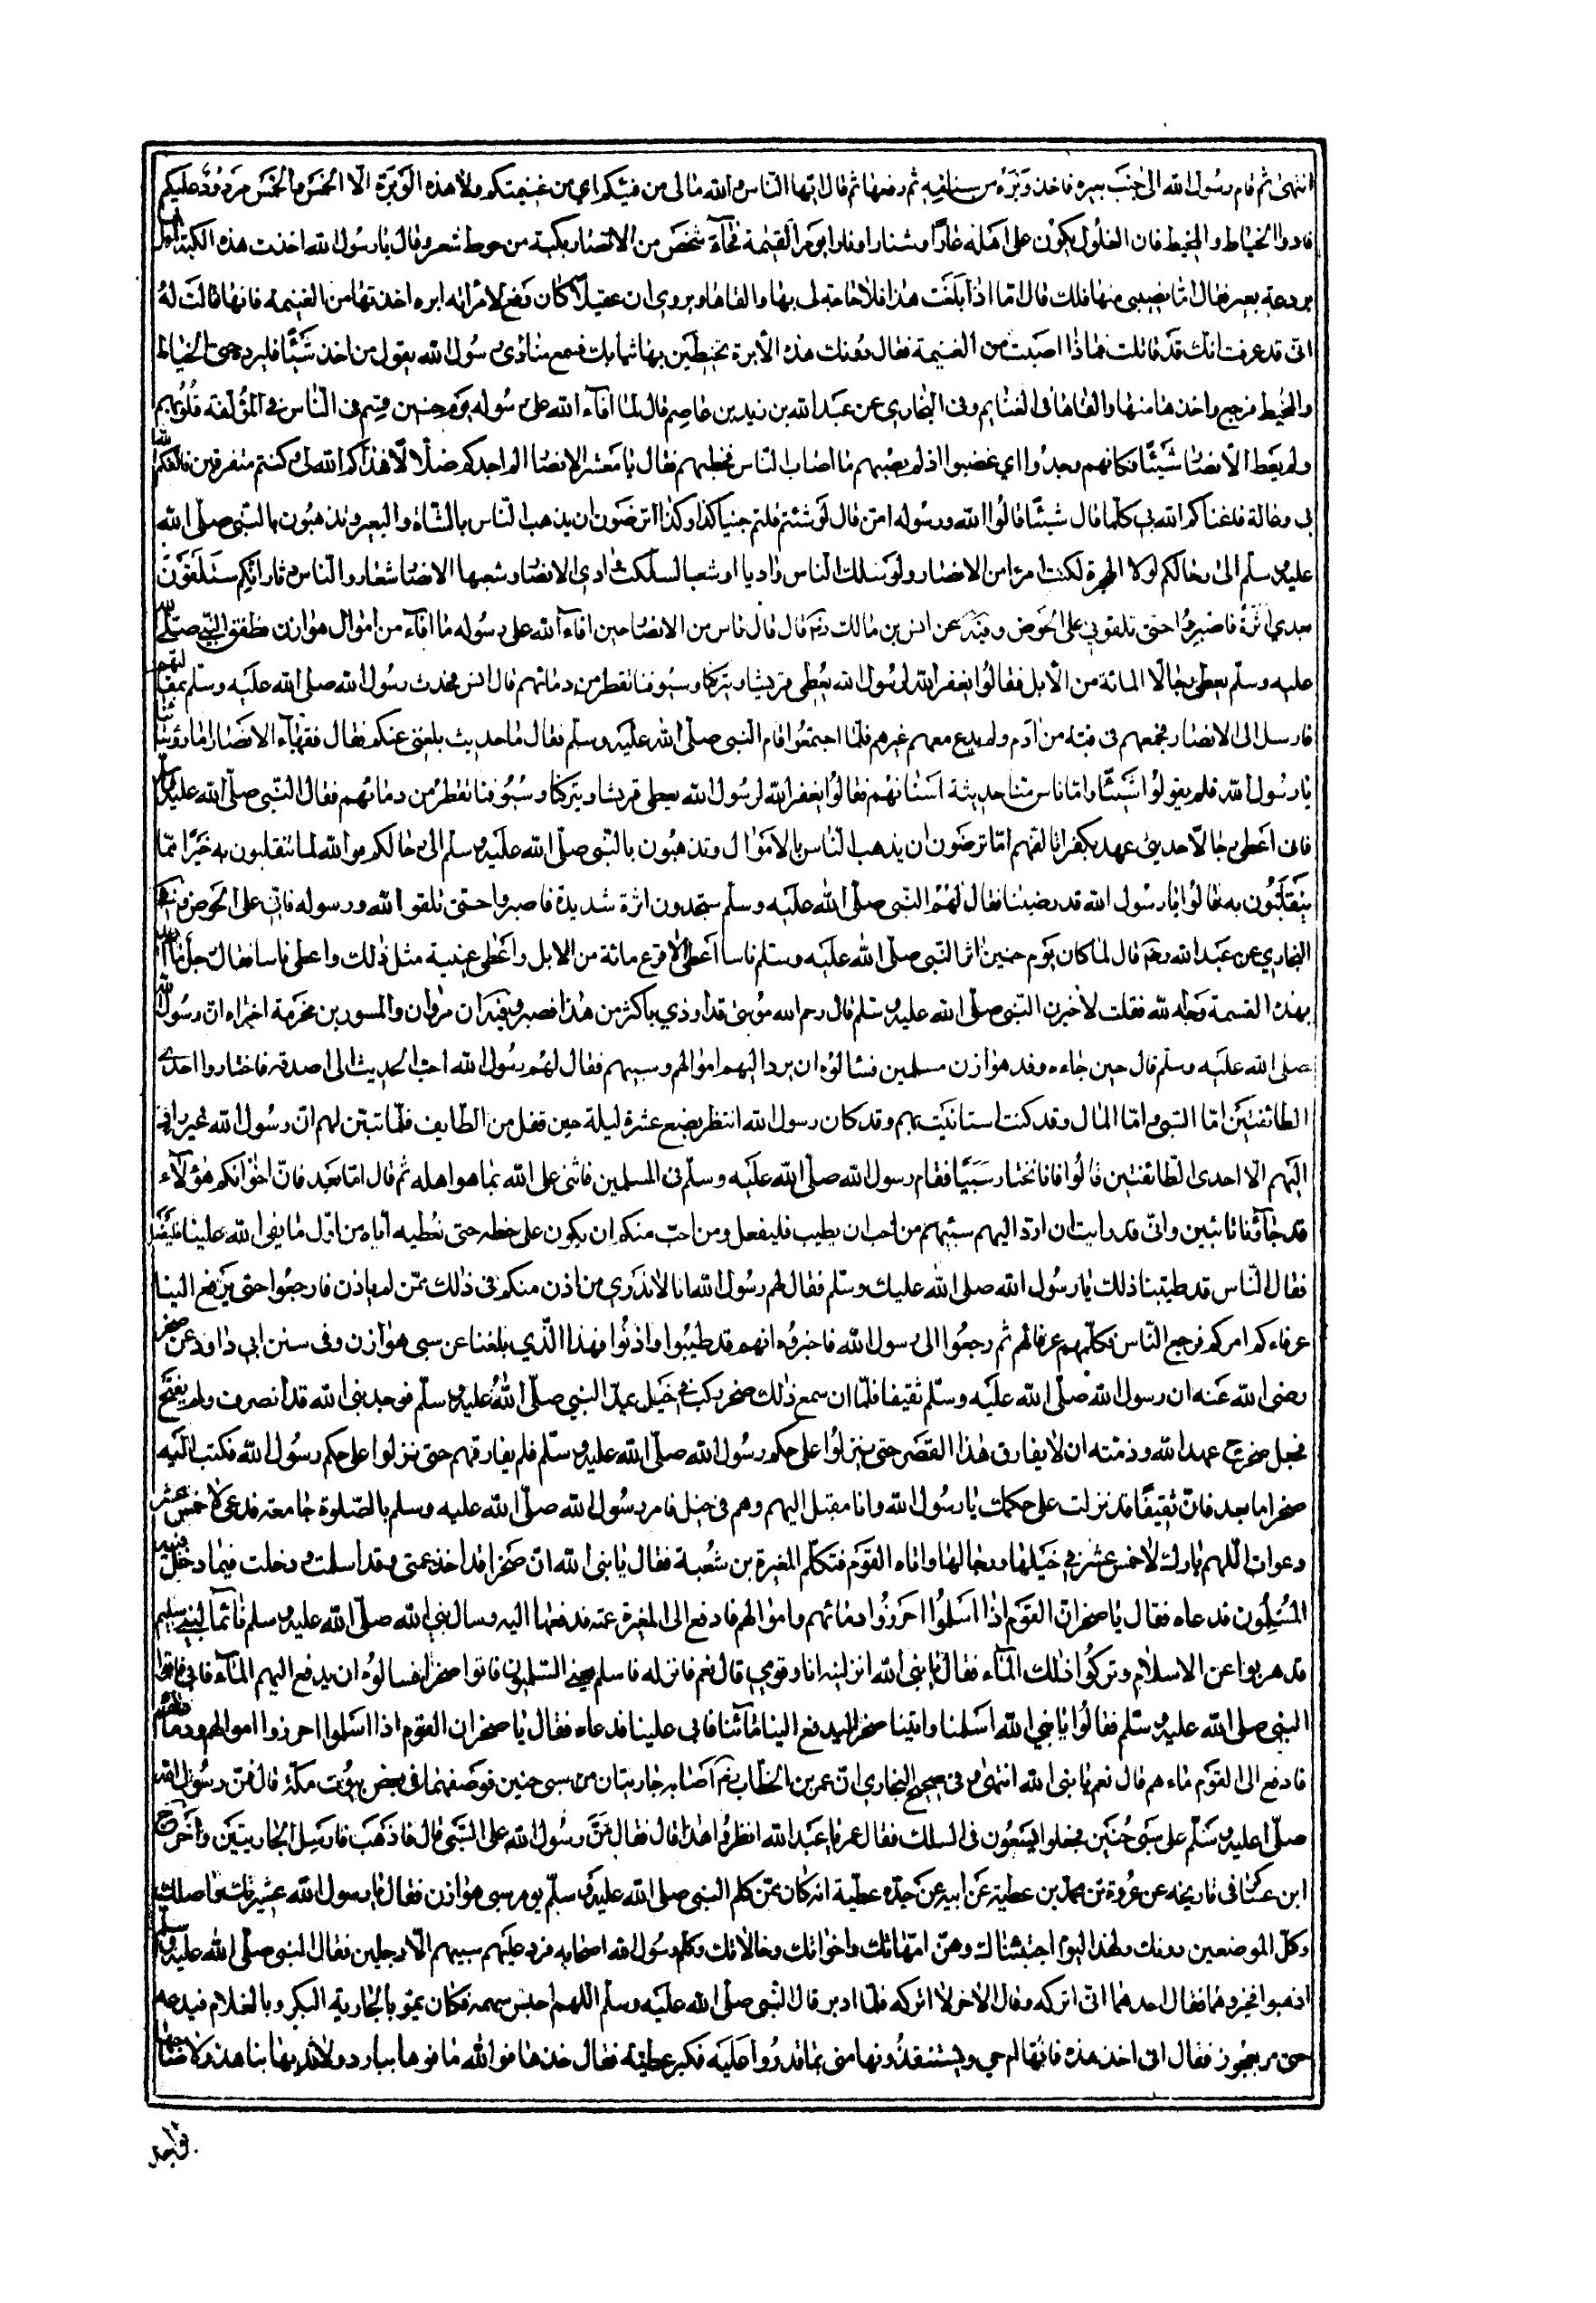 انتهى ثم قام رسول الله الى جنب بعيره فاخذ وبرة من سنامه ثم رفعها ثم قال ايها الناس والله مالى من فيئكم اي من غنيمتكم ولا هذه الوبرة الا الخمس والخمس مردود عليكم
فادوا الخياط والمخيط فان الغلول يكون على اهله عارا وشنارا ونارا يوم القيمة فجاءه شخص من الانصار بكبة من خيوط شعر وقال يا رسول الله اخذت هذه الكبة اعمل
بردعة بعير فقال اما نصيبى منها فلك قال اما اذا بلغت هذا فلا حاجة لى بها والقاها ويروى ان عقيلا كان دفع لامراته ابره اخذتها من الغنيمة فانها قالت له
انى قد عرفت انك قد قاتلت فماذا اصبت من الغنيمة فقال دونك هذه الابرة تخيطين بها ثيابك فسمع منادى رسول الله يقول من اخذ شيئا فليرده حتى الخياط
والمخيط فرجع واخذها منها والقاها فى الغنايم وفى البخاري عن عبد الله بن زيد بن عاصم قال لما افاء الله على رسوله يوم حنين قسم فى الناس فى المؤلفة قلوبهم
ولم يعط الانصار شيئا فكانهم وجدوا اي غضبوا اذ لم يصبهم ما اصاب الناس فخطبهم فقال يا معشر الانصار الم اجدكم ضلالا فهداكم الله بى وكنتم متفرقين فالفكم الله
بى وعالة فاغناكم الله بى كلما قال شيئا قالوا الله ورسوله امن قال لو شئتم قلتم جئتنا كذا وكذا اترضون ان يذهب الناس بالشاة والبعير وتذهبون بالنبى صلى الله
عليه وسلم الى رحالكم لولا الهجرة لكنت امرءا من الانصار ولو سلك الناس واديا او شعبا لسلكت وادى الانصار وشعبها الانصار شعار والناس دثار انكم ستلقون
بعدي اثرة فاصبروا حتى تلقونى على الحوض وفيه عن انس بن مالك رضه قال قال ناس من الانصار حين افاء الله على رسوله ما افاء من اموال هوازن فطفق النبى صلى الله
عليه وسلم يعطى رجالا المائة من الابل فقالوا يغفر الله لرسول الله يعطى قريشا ويتركنا وسيوفنا تقطر من دمائهم قال انس فحدث رسول الله صلى الله عليه وسلم بمقالتهم
فارسل الى الانصار فجمعهم فى قبة من ادم ولم يدع معهم غيرهم فلما اجتمعوا قام النبى صلى الله عليه وسلم فقال ما حديث بلغنى عنكم فقال فقهاء الانصار اما رؤساؤنا
يا رسول الله فلم يقولوا شيئا واما ناس منا حديثة اسنانهم فقالوا يغفر الله لرسول الله يعطى قريشا ويتركنا وسيوفنا تقطر من دمائهم فقال النبى صلى الله عليه وسلم
فانى اعطى رجالا حديثى عهد بكفر اتالفهم اما ترضون ان يذهب الناس بالاموال وتذهبون بالنبى صلى الله عليه وسلم الى رحالكم فوالله لما تنقلبون به خيرا مما
ينقلبون به قالوا يا رسول الله قد رضينا فقال لهم النبى صلى الله عليه وسلم ستجدون اثرة شديدة فاصبروا حتى تلقوا الله ورسوله فانى على الحوض وفى صحيح
البخاري عن عبد الله رضه قال لما كان يوم حنين اثر النبى صلى الله عليه وسلم ناسا اعطى الاقرع مائة من الابل واعطى عيينة مثل ذلك واعطى ناسا فقال رجل ما اريد
بهذه القسمة وجه الله فقلت لاخبرن النبى صلى الله عليه وسلم قال رحم الله موسى قد اوذي باكثر من هذا فصبر وفيه ان مروان والمسور بن مخرمة اخبراه ان رسول الله
صلى الله عليه وسلم قال حين جاءه وفد هوازن مسلمين فسالوه ان يرد اليهم اموالهم وسبيهم فقال لهم رسول الله احب الحديث الى اصدقه فاختاروا احدى
الطائفتين اما السبى واما المال وقد كنت استانيت بهم وقد كان رسول الله انتظر بضع عشرة ليلة حين قفل من الطايف فلما تبين لهم ان رسول الله غير راد
اليهم الا احدى الطائفتين قالوا فانا نختار سبينا فقام رسول الله صلى الله عليه وسلم فى المسلمين فاثنى على الله بما هو اهله ثم قال اما بعد فان اخوانكم هؤلاء
قد جاؤنا تائبين وانى قد رايت ان ارد اليهم سبيهم من احب ان يطيب فليفعل ومن احب منكم ان يكون على حظه حتى نعطيه اياه من اول ما يفى الله علينا فليفعل
فقال الناس قد طيبنا ذلك يا رسول الله صلى الله عليك وسلم فقال لهم رسول الله انا لا ندري من اذن منكم فى ذلك ممن لم ياذن فارجعوا حتى يرفع الينا
عرفاءكم امركم فرجع الناس فكلمهم عرفائهم ثم رجعوا الى رسول الله فاخبروه انهم قد طيبوا واذنوا فهذا الذي بلغنا عن سبى هوازن وفى سنن ابى داود عن صخر
رضى الله عنه ان رسول الله صلى الله عليه وسلم ثقيفا فلما ان سمع ذلك صخر ركب فى خيل يمد النبي صلى الله عليه وسلم فوجد نبى الله قد انصرف ولم يفتح
فجعل صخر ح عهد الله وذمته ان لا يفارق هذا القصر حتى ينزلوا على حكم رسول الله صلى الله عليه وسلم فلم يفارقهم حتى نزلوا على حكم رسول الله فكتب اليه
صخر اما بعد فان ثقيفا قد نزلت على حكمك يا رسول الله وانا مقبل اليهم وهم فى خيل فامر رسول الله صلى الله عليه وسلم بالصلوة جامعة فدعى لاحمس عشر
دعوات اللهم بارك لاحمس عشر فى خيلها ورجالها واتاه القوم فتكلم المغيرة بن شعبة فقال يا نبى الله ان صخرا قد اخذ عمتى وقد اسلمت ودخلت فيما دخل فيه
المسلمون فدعاه فقال يا صخر ان القوم اذا اسلموا احرزوا دمائهم واموالهم فادفع الى المغيرة عمته فدفعها اليه وسال نبى الله صلى الله عليه وسلم ماء لبنى سليم
قد هربوا عن الاسلام وتركوا ذلك الماء فقال يا نبى الله انزلنيه انا وقومى قال نعم فانزله فاسلم يعنى السلميون فاتوا صخرا فسالوه ان يدفع اليهم الماء فابى فاتوا
النبى صلى الله عليه وسلم فقالوا يا نبى الله اسلمنا واتينا صخرا ليدفع الينا مائنا فابى علينا فدعاه فقال يا صخر ان القوم اذا اسلموا احرزوا اموالهم ودماءهم
فادفع الى القوم ماءهم قال نعم يا نبى الله انتهى وفى صحيح البخاري ان عمر بن الخطاب رضه اصابه جاريتان من سبى حنين فوضعهما فى بعض بيوت مكة قال فمن رسول الله
صلى عليه وسلم على سبى حنين فجعلوا يسعون فى السكك فقال عمر يا عبد الله انظر ما هذا قال فقال من رسول الله على السبى قال فاذهب فارسل الجاريتين واخرج
ابن عساكر فى تاريخه عن عروة بن محمد بن عطية عن ابيه عن جده عطية انه كان ممن كلم النبى صلى الله عليه وسلم يوم سبى هوازن فقال يا رسول الله عشيرتك واصلك
وكل الموضعين دونك ولهذا اليوم اختبأناك وهن امهاتك واخواتك وخالاتك وكلم رسول الله اصحابه فرد عليهم سبيهم الا رجلين فقال النبى صلى الله عليه وسلم
اذهبوا فخيروهما فقال احدهما انى اتركه وقال الاخر لا اتركه فلما ادبر قال النبى صلى الله عليه وسلم اللهم اخس سهمه فكان يمر بالجارية البكر وبالغلام فيدعه
حتى مر بعجوز فقال انى اخذ هذه فانها ام حى ويستنقذونها منى بما قدروا عليه فكبر عطية فقال خذها فوالله ما فوها ببارد ولا ثديها بناهد ولا